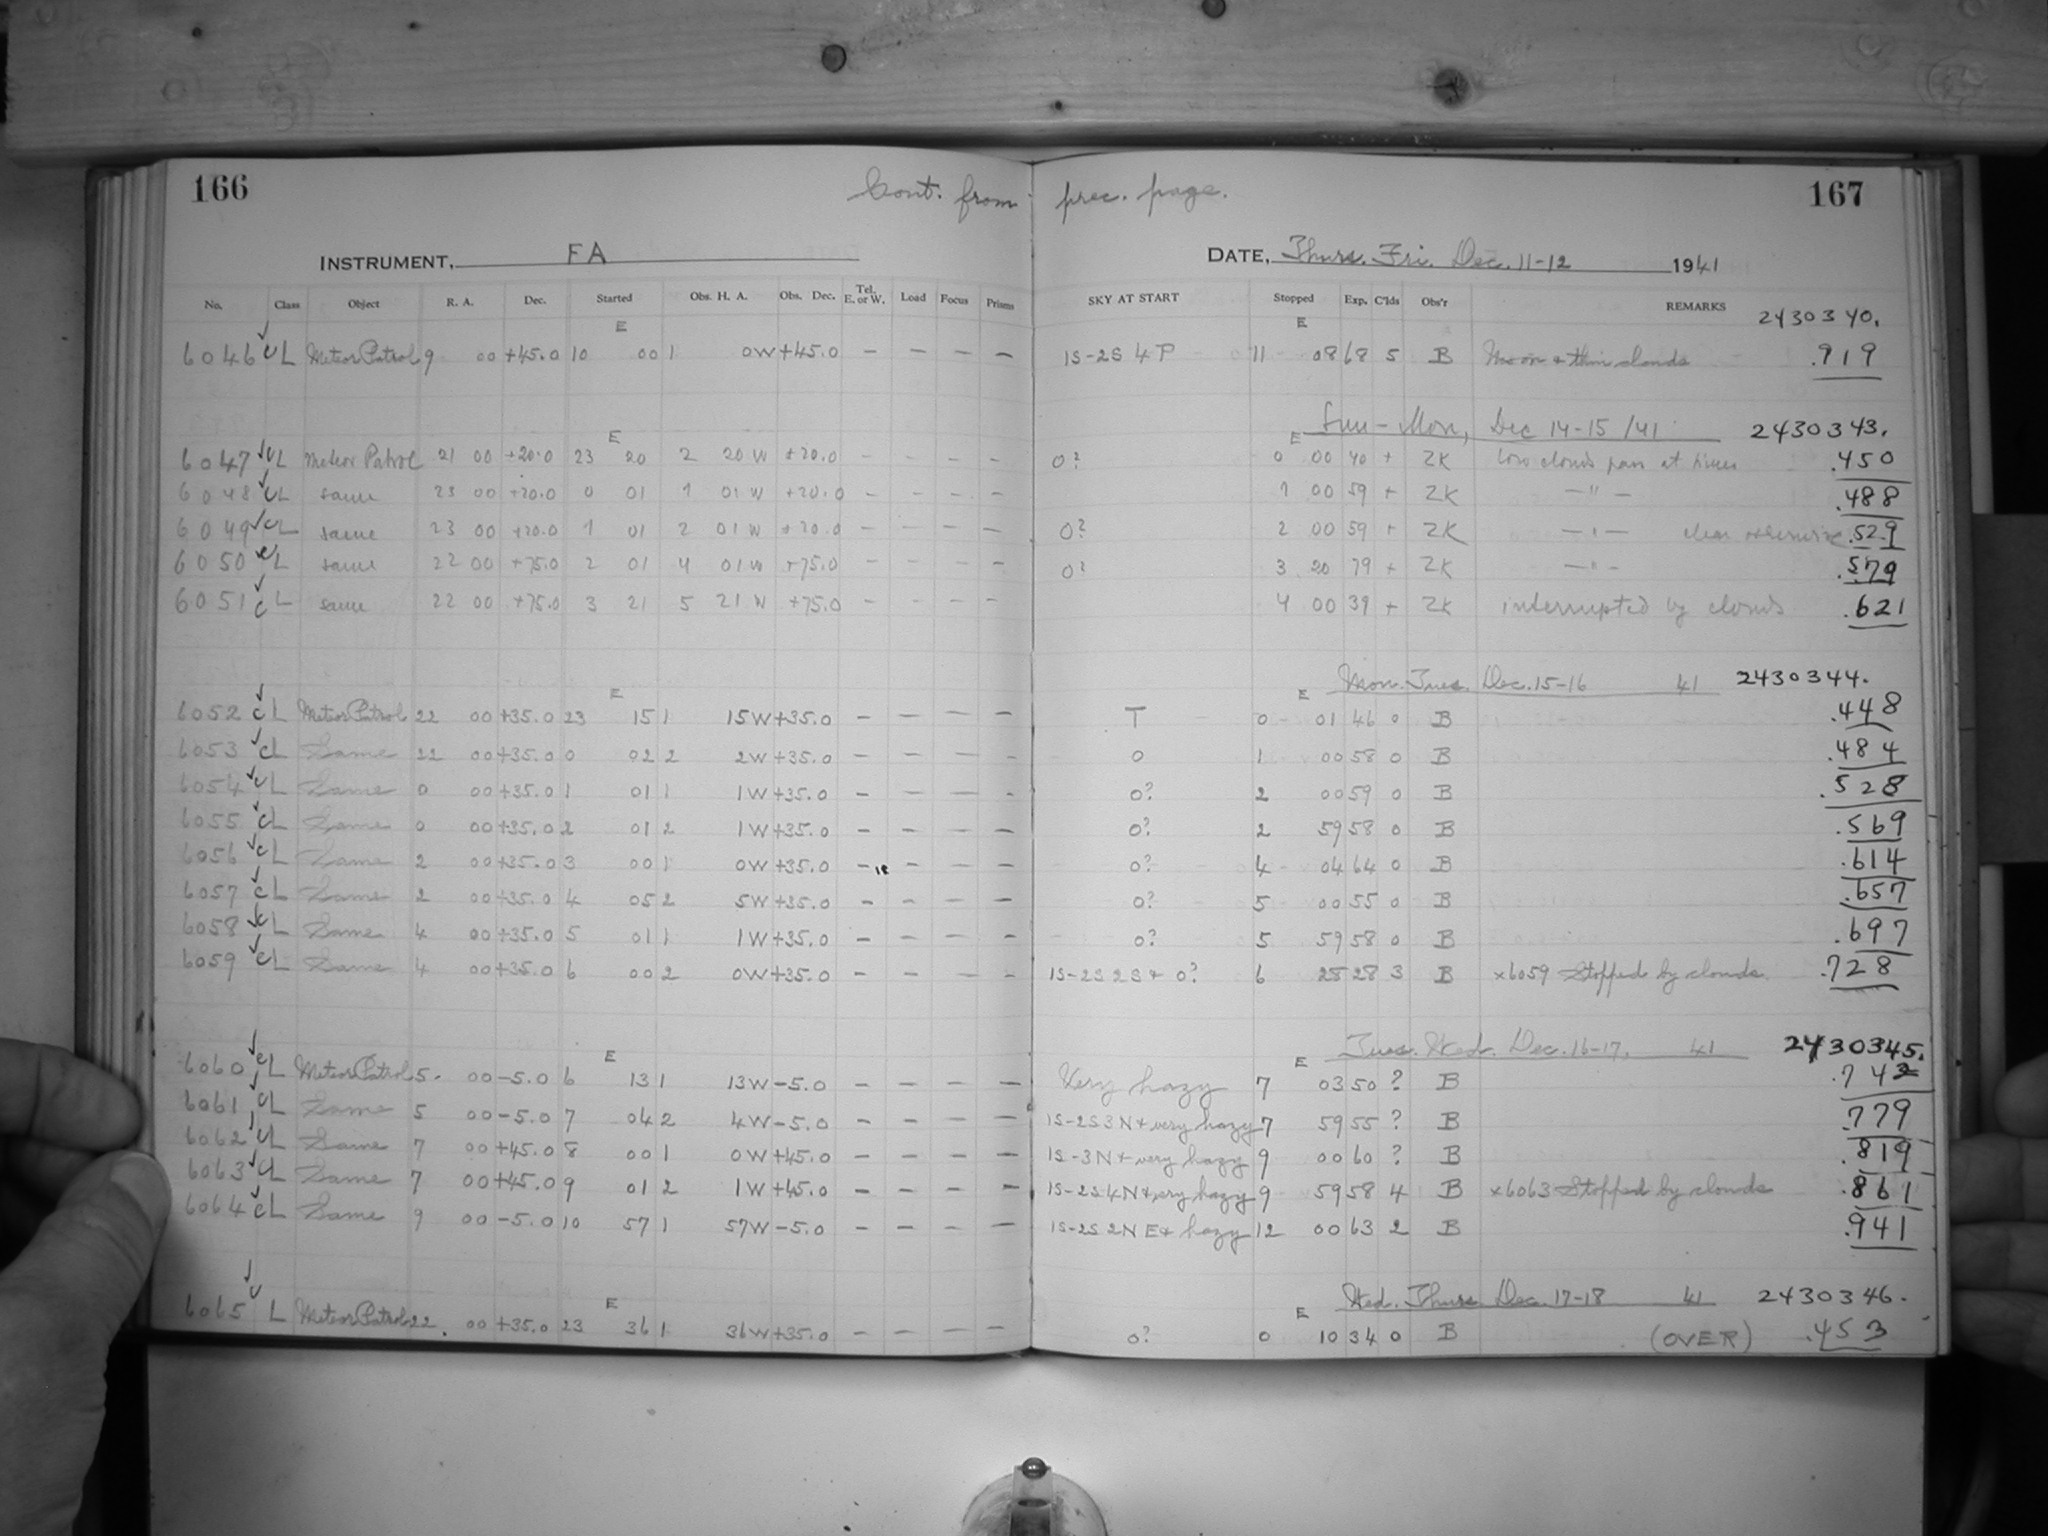 166 Cont. from prec. page. 167
INSTRUMENT, FA DATE, Thurs. Fri. Dec. 11-12 1941
No. Class Object R. A. Dec. Started Obs. H. A. Obs. Dec. Tel. E. or W. Load Focus Prisms SKY AT START Stopped Exp. C'lds Obs'r REMARKS 2430340.
E E
6046 CL Meteor Patrol 9 00 +45.0 10 00 1 0W +45.0 — — — — 1S-2S 4P 11 08 68 5 B Moon & thin clouds .919
Sun - Mon, Dec 14-15 /41 2430343.
E E
6047 CL Meteor Patrol 21 00 +20.0 23 20 2 20 W +20.0 — — — — 0? 0 00 40 + ZK low clouds pass at times .450
6048 CL same 23 00 +20.0 0 01 1 01 W +20.0 — — — — 1 00 59 + ZK — " — .488
6049 CL same 23 00 +20.0 1 01 2 01 W +20.0 — — — — 0? 2 00 59 + ZK — " — clear otherwise .529
6050 CL same 22 00 +75.0 2 01 4 01 W +75.0 — — — — 0? 3 20 79 + ZK — " — .579
6051 CL same 22 00 +75.0 3 21 5 21 W +75.0 — — — — 4 00 39 + ZK interrupted by clouds .621
Mon. Tues. Dec. 15-16 41 2430344.
E E
6052 CL Meteor Patrol 22 00 +35.0 23 15 1 15W +35.0 — — — — T 0 01 46 0 B .448
6053 CL Same 22 00 +35.0 0 02 2 2W +35.0 — — — - 0 1 00 58 0 B .484
6054 CL Same 0 00 +35.0 1 01 1 1W +35.0 — — — - 0? 2 00 59 0 B .528
6055 CL Same 0 00 +35.0 2 01 2 1W +35.0 — — — — 0? 2 59 58 0 B .569
6056 CL Same 2 00 +35.0 3 00 1 0W +35.0 — — — — 0? 4 04 64 0 B .614
6057 CL Same 2 00 +35.0 4 05 2 5W +35.0 — — — — 0? 5 00 55 0 B .657
6058 CL Same 4 00 +35.0 5 01 1 1W +35.0 — — — — 0? 5 59 58 0 B .697
6059 CL Same 4 00 +35.0 6 00 2 0W +35.0 — — — — 1S-2S 2S + 0? 6 28 28 3 B x6059 Stopped by clouds. .728
Tues. Wed. Dec. 16-17, 41 2430345.
E E
6060 CL Meteor Patrol 5. 00 -5.0 6 13 1 13W -5.0 — — — — Very hazy 7 03 50 ? B .742
6061 CL Same 5 00 -5.0 7 04 2 4W -5.0 — — — — 1S-2S 3N + very hazy 7 59 55 ? B .779
6062 CL Same 7 00 +45.0 8 00 1 0W +45.0 — — — — 1S-3N + very hazy 9 00 60 ? B .819
6063 CL Same 7 00 +45.0 9 01 2 1W +45.0 — — — — 1S-2S 4N + very hazy 9 59 58 4 B x6063 Stopped by clouds .861
6064 CL Same 9 00 -5.0 10 57 1 57W -5.0 — — — — 1S-2S 2N E + hazy 12 00 63 2 B .941
Wed. Thurs. Dec. 17-18 41 2430346.
E E
6065 CL Meteor Patrol 22 00 +35.0 23 36 1 36W +35.0 — — — — 0? 0 10 34 0 B (OVER) .453